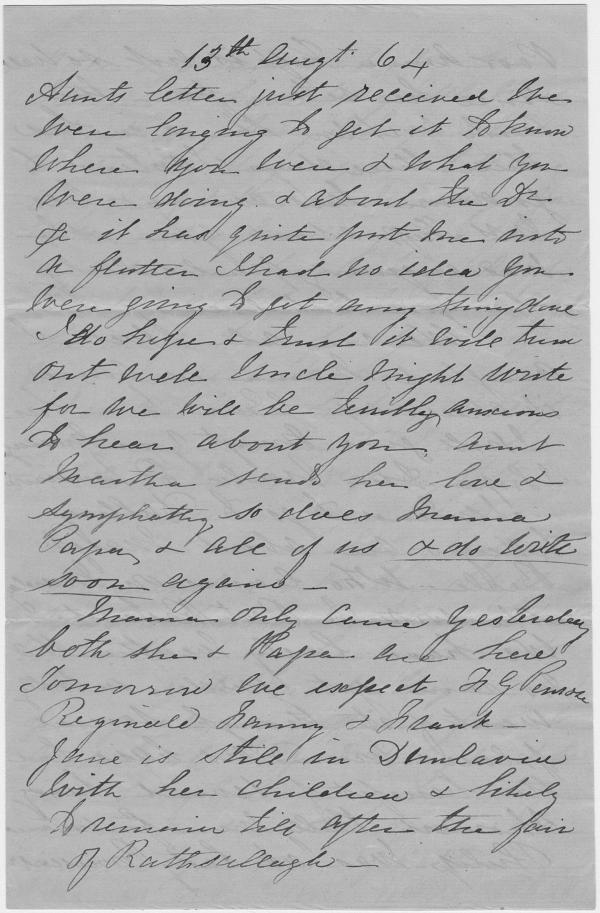 13th Augt. 64
Aunts letter just received We
were longing to get it to know
where you were & what you
were doing & about the Dr
&c it has quite put me into
a flutter I had no idea you
were going to get any thing done
I do hope & trust it will turn
out well Uncle might write
for we will be terribly anxious
to hear about you Aunt
Martha sends her love &
symphathy so does Mama
Papa, & all of us & do write
soon again –
Mama only came yesterday
both she & Papa are here
Tomorrow we expect H G Penrose
Reginald Fanny & Frank –
Jane is still in Dunlavin
with her children & likely
to remain till after the fair
of Rathsallagh –